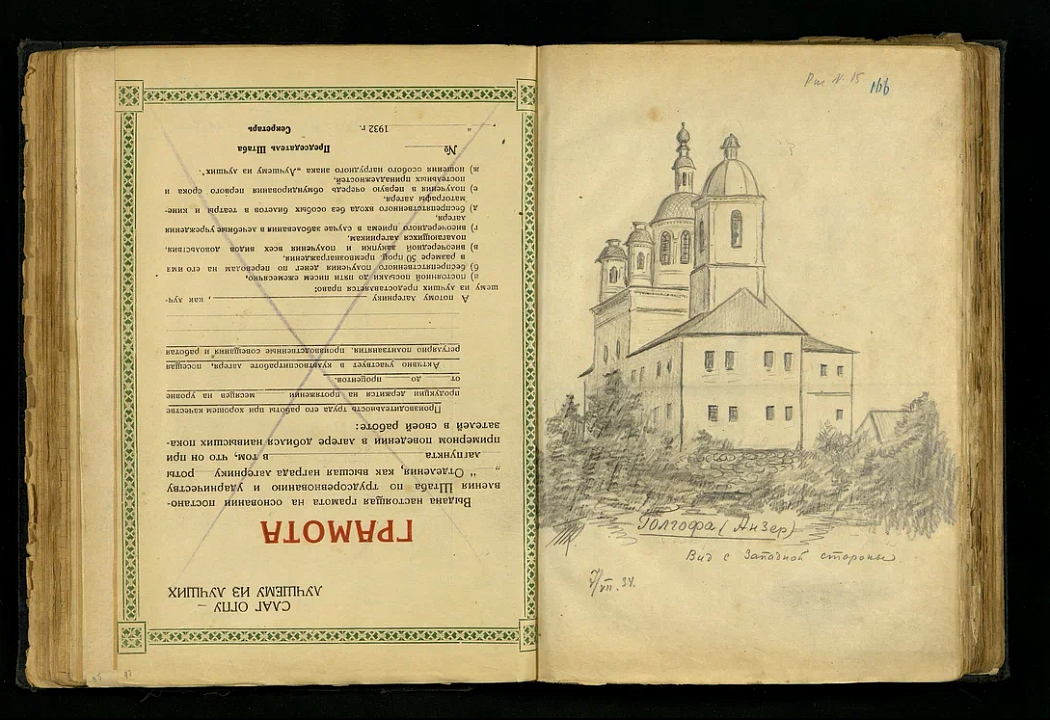 СЛАГ ОГПУ –
ЛУЧШЕМУ ИЗ ЛУЧШИХ
ГРАМОТА
Выдана настоящая грамота на основании постано-
вления Штаба по трудсоревнованию и ударничеству
" " Отделения, как высшая награда лагернику роты
лагпункта в том, что он при
примерном поведении в лагере добился наивысших пока-
зателей в своей работе:
Производительность труда его работы при хорошем качестве
продукции держится на протяжении месяцев на уровне
от до процентов.
Активно участвует в культвоспитработе лагеря, посещая
регулярно политзанятия, производственные совещания и работая
А потому лагернику , как луч-
шему из лучших предоставляется право:
а) постоянной посылки до пяти писем ежемесячно,
б) беспрепятственного получения денег по переводам на его имя
в размере 50 проц. премвознаграждения,
в) внеочередной закупки и получения всех видов довольствия,
полагающихся лагерникам,
г) внеочередного приема в случае заболевания в лечебные учреждения
лагеря,
д) беспрепятственного входа без особых билетов в театры и кине-
матографы лагеря,
е) получения в первую очередь обмундирования первого срока и
постельных принадлежностей,
ж) ношения особого нагрудного знака „Лучшему из лучших".
№ Председатель Штаба
" 1932 г. Секретарь
Рис N. 15 166
Голгофа (Анзер)
Вид с Западной стороны
7/VII. 34.